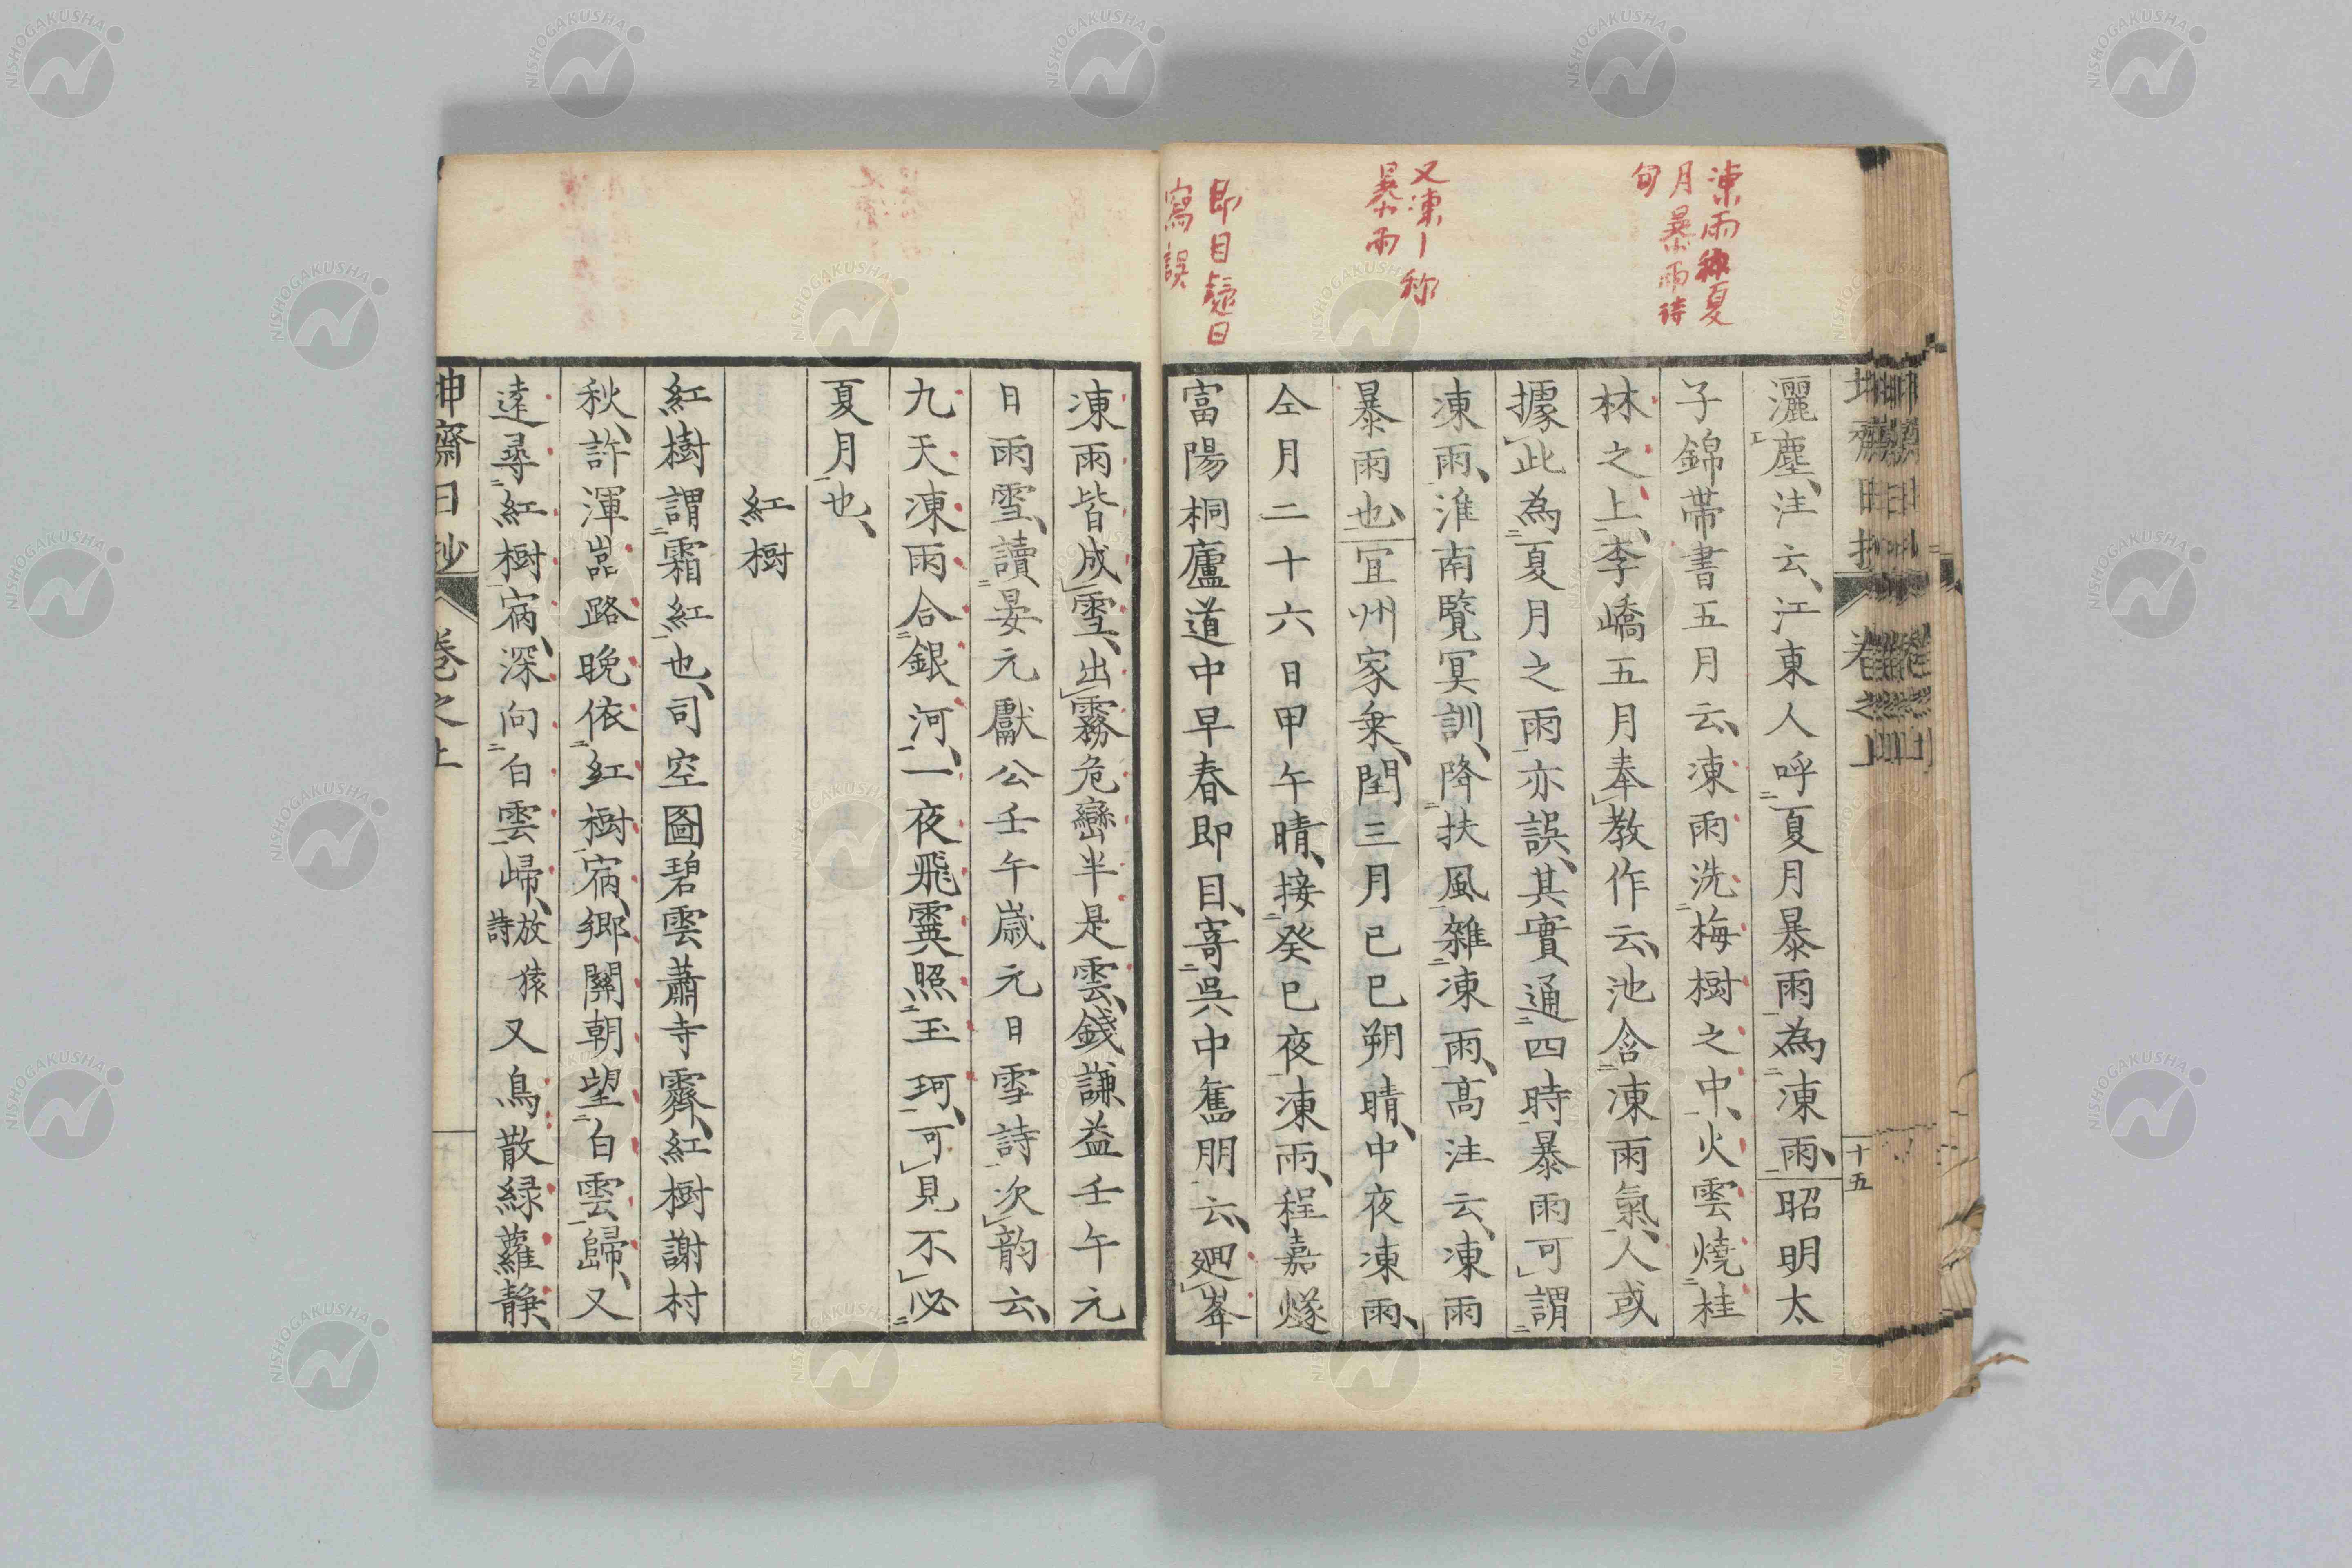 凍雨称夏
月暴雨待
旬
又凍丨称
暴雨
即目疑日
寫誤
灑塵注云江東人呼夏月暴雨為凍雨昭明太
子錦帯書五月云凍雨洗梅樹之中火雲燒桂
林之上李嶠五月奉教作云池含凍雨氣人或
據此為夏月之雨亦誤其實通四時暴雨可謂
凍雨淮南覽冥訓降扶風雜凍雨高注云凍雨
暴雨也宜州家乗閏三月己巳朔晴中夜凍雨
仝月二十六日甲午晴接癸巳夜凍雨程嘉燧
富陽桐廬道中早春即目寄呉中舊朋云廻峯
十五
凍雨皆成雪出霧危巒半是雲錢謙益壬午元
日雨雪讀晏元獻公壬午歳元日雪詩次韵云
九天凍雨合銀河一夜飛霙照玉珂可見不必
夏月也
紅樹
紅樹謂霜紅也司空圖碧雲蕭寺霽紅樹謝村
秋許渾嵓路晩依紅樹宿鄉關朝望白雲歸又
遠尋紅樹宿深向白雲歸放猿詩又鳥散緑蘿靜
卷之上
NISHOGAKUSHA